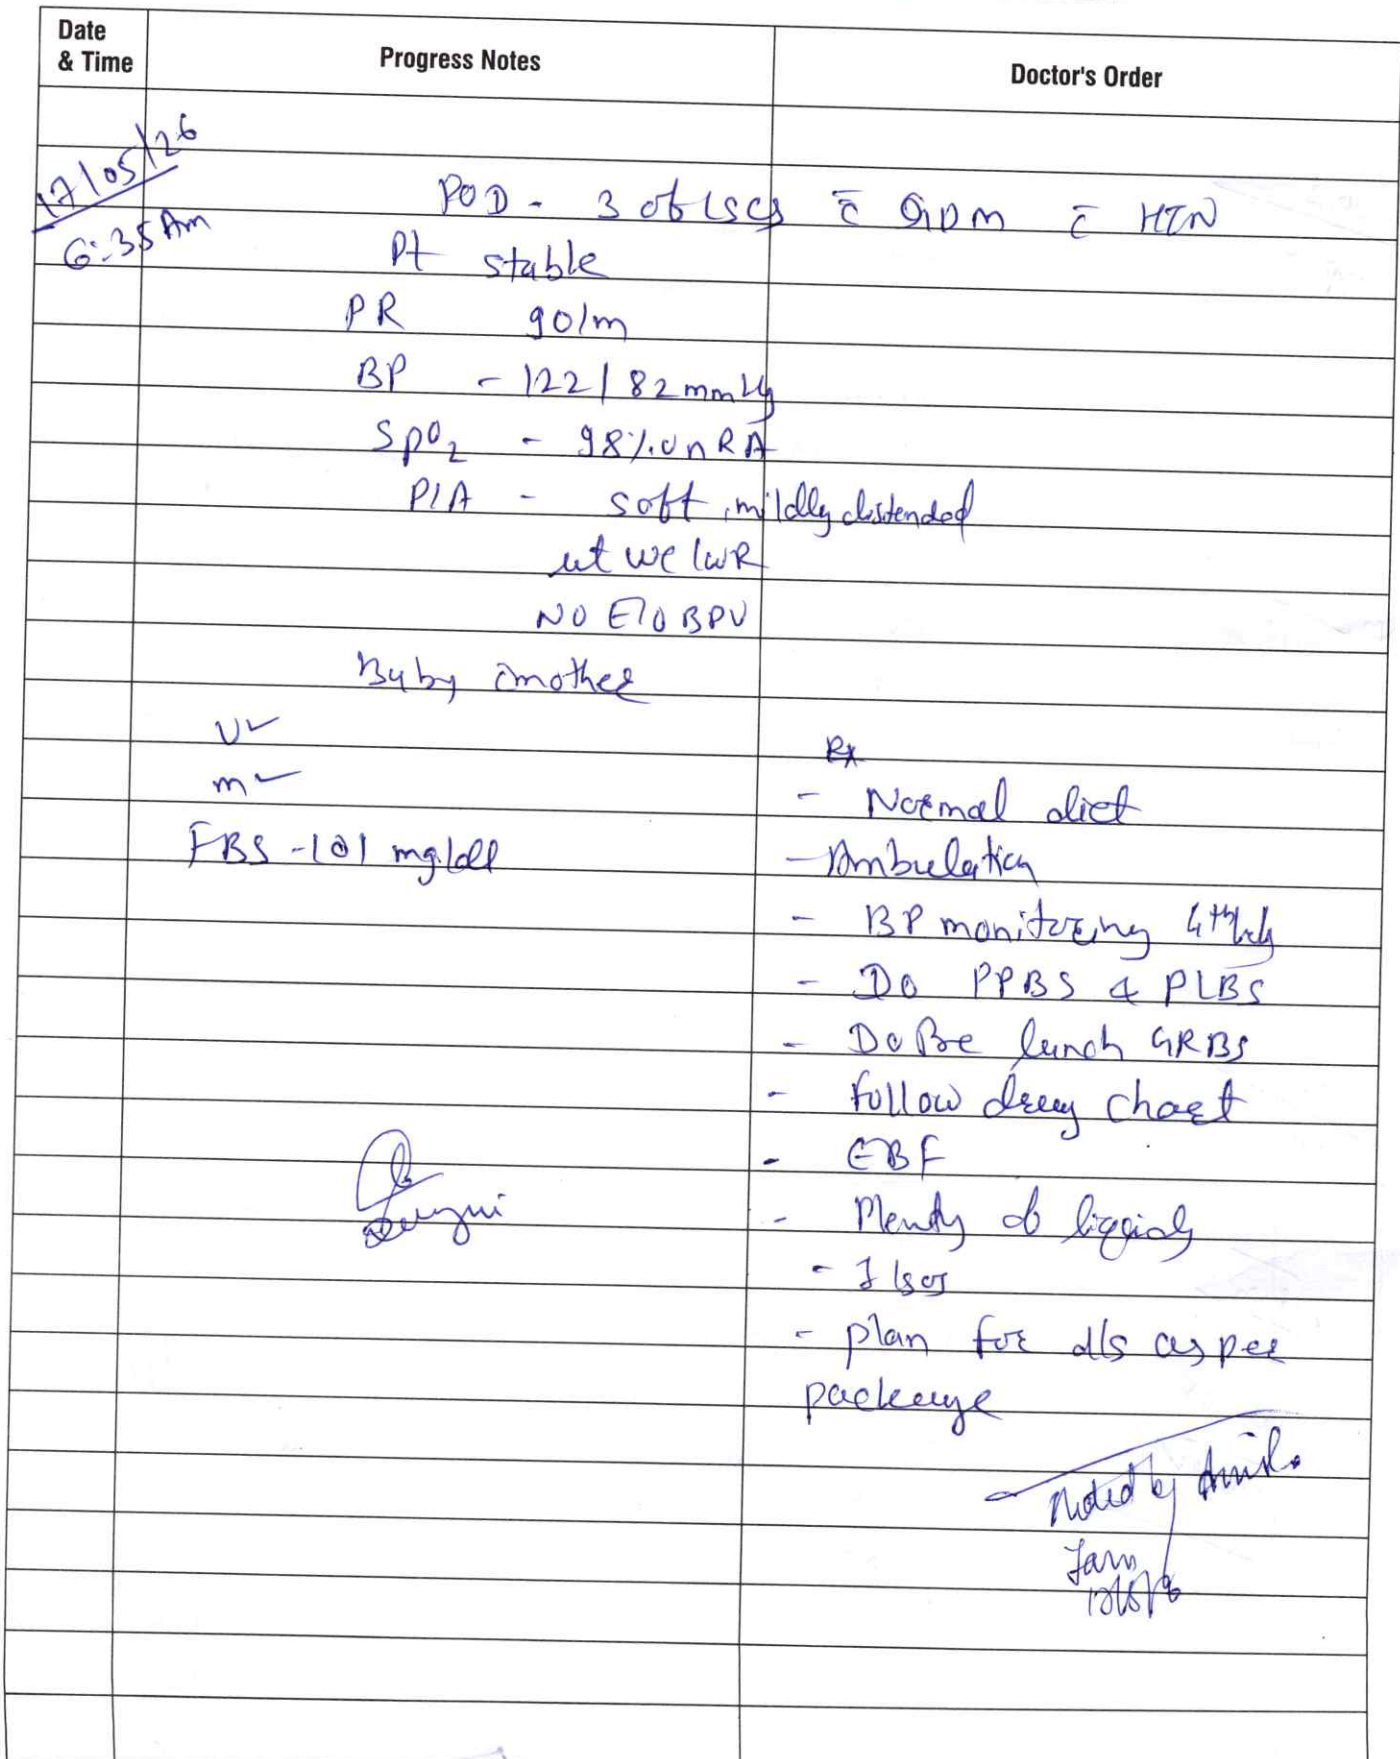 Date
& Time
Progress Notes
Doctor's Order
17/05/26
6:35 Am
POD - 3 of LSCS c̄ GDM c̄ HTN
Pt stable
PR 90/m
BP - 122/82 mmHg
SpO2 - 98% on RA
P/A - soft, mildly distended
ut WC/WR
NO E/O BPV
Baby c̄ mother
U ✓
m ✓
FBS - 101 mg/dl
Rx
- Normal diet
- Ambulation
- BP monitoring 4th hly
- Do PPBS & PLBS
- Do Pre lunch GRBS
- Follow drug chart
- EBF
- Plenty of liquids
- plan for d/s as per
package
Noted by